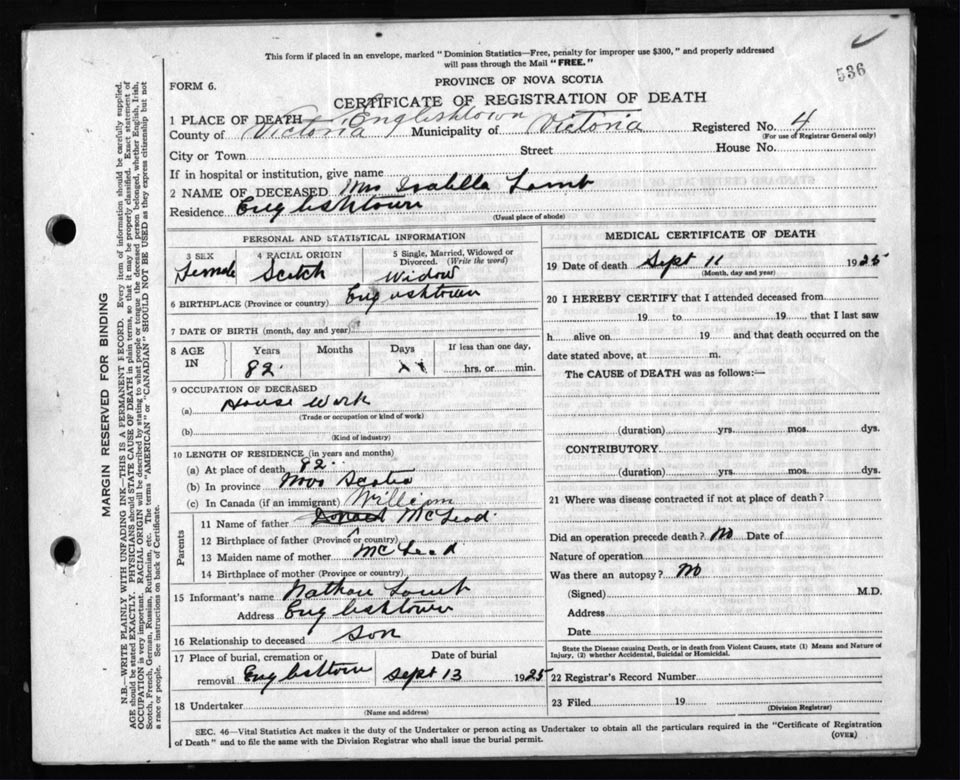 This form if placed in an envelope, marked "Dominion Statistics—Free, penalty for improper use $300," and properly addressed
will pass through the Mail "FREE."
536
FORM 6.
PROVINCE OF NOVA SCOTIA
CERTIFICATE OF REGISTRATION OF DEATH
1 PLACE OF DEATH Englishtown
County of Victoria Municipality of Victoria Registered No. 4
(For use of Registrar General only)
City or Town Street House No.
If in hospital or institution, give name
2 NAME OF DECEASED Mrs Isabella Lamb
Residence Englishtown
(Usual place of abode)
PERSONAL AND STATISTICAL INFORMATION
3 SEX 4 RACIAL ORIGIN 5 Single, Married, Widowed or
Divorced. (Write the word)
Female Scotch Widow
6 BIRTHPLACE (Province or country) Englishtown
7 DATE OF BIRTH (month, day and year)
8 AGE IN Years Months Days If less than one day,
82 hrs. or min.
9 OCCUPATION OF DECEASED
(a) House Work
(Trade or occupation or kind of work)
(b)
(Kind of industry)
10 LENGTH OF RESIDENCE (in years and months)
(a) At place of death 82
(b) In province Nova Scotia
(c) In Canada (if an immigrant)
William
Parents
11 Name of father Donald McLeod
12 Birthplace of father (Province or country)
13 Maiden name of mother McLeod
14 Birthplace of mother (Province or country)
15 Informant's name Nathan Lamb
Address Englishtown
16 Relationship to deceased son
17 Place of burial, cremation or Date of burial
removal Englishtown Sept 13 1925
18 Undertaker
(Name and address)
MEDICAL CERTIFICATE OF DEATH
19 Date of death Sept 11 1925
(Month, day and year)
20 I HEREBY CERTIFY that I attended deceased from
19 to 19 that I last saw
h alive on 19 and that death occurred on the
date stated above, at m.
The CAUSE of DEATH was as follows:—
(duration) yrs. mos. dys.
CONTRIBUTORY
(duration) yrs. mos. dys.
21 Where was disease contracted if not at place of death?
Did an operation precede death? No Date of
Nature of operation
Was there an autopsy? No
(Signed) M.D.
Address
Date
State the Disease causing Death, or in death from Violent Causes, state (1) Means and Nature of
Injury, (2) whether Accidental, Suicidal or Homicidal.
22 Registrar's Record Number
23 Filed 19
(Division Registrar)
SEC. 46—Vital Statistics Act makes it the duty of the Undertaker or person acting as Undertaker to obtain all the particulars required in the "Certificate of Registration
of Death" and to file the same with the Division Registrar who shall issue the burial permit.
(OVER)
MARGIN RESERVED FOR BINDING
N.B.—WRITE PLAINLY WITH UNFADING INK—THIS IS A PERMANENT RECORD. Every item of information should be carefully supplied.
AGE should be stated EXACTLY. PHYSICIANS should STATE CAUSE OF DEATH in plain terms, so that it may be properly classified. Exact statement of
OCCUPATION is very important. RACIAL ORIGIN will be described by stating to what people or tongue the deceased person belonged, whether English, Irish,
Scotch, French, German, Russian, Ruthenian, etc. The terms "AMERICAN" or "CANADIAN" SHOULD NOT BE USED as they express citizenship but not
a race or people. See instructions on back of Certificate.